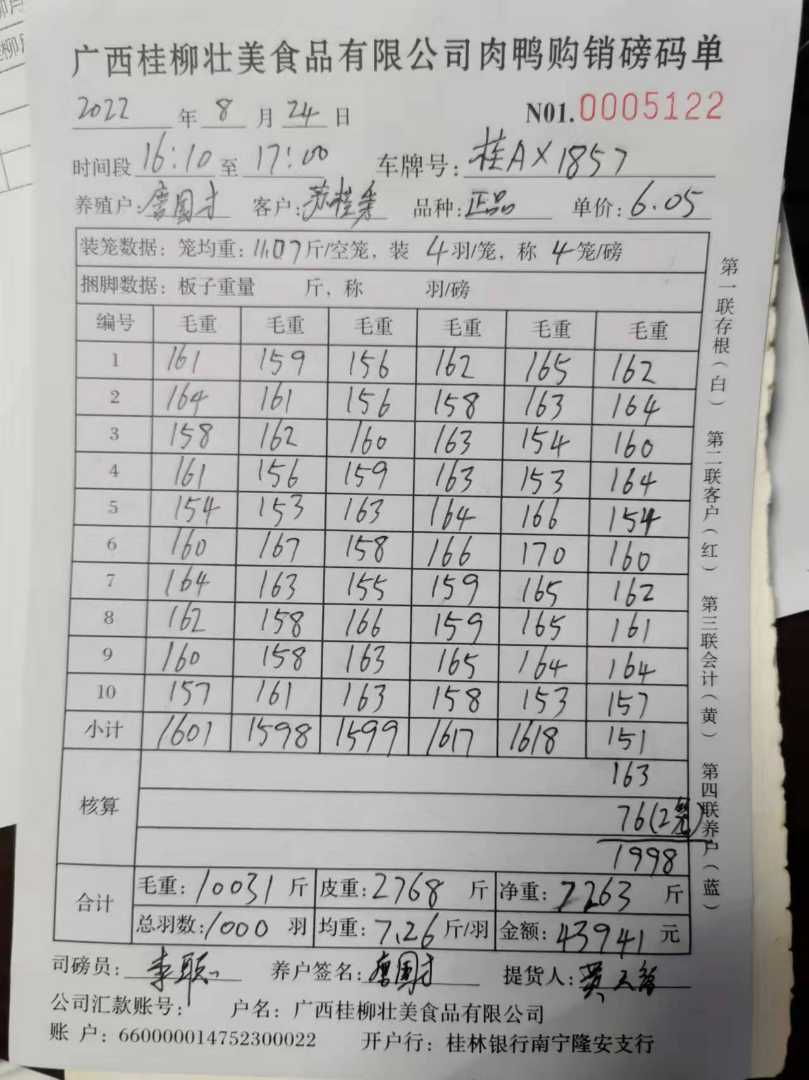 广西桂柳壮美食品有限公司肉鸭购销磅码单
2022 年 8 月 24 日 N01.0005122
时间段 16:10 至 17:00 车牌号: 桂AX1857
养殖户: 唐国才 客户: 苏桂 品种: 正品 单价: 6.05
装笼数据: 笼均重: 11.07 斤/空笼, 装 4 羽/笼, 称 4 笼/磅
捆脚数据: 板子重量 斤, 称 羽/磅
编号 毛重 毛重 毛重 毛重 毛重 毛重
1 161 159 156 162 165 162
2 164 161 156 158 163 164
3 158 162 160 163 154 160
4 161 156 159 163 153 164
5 154 153 163 164 166 154
6 160 167 158 166 170 160
7 164 163 155 159 165 162
8 162 158 166 159 165 161
9 160 158 163 165 164 164
10 157 161 163 158 153 157
小计 1601 1598 1599 1617 1618 151
核算
163
76(2笼)
1998
合计
毛重: 10031 斤 皮重: 2768 斤 净重: 7263 斤
总羽数: 1000 羽 均重: 7.26 斤/羽 金额: 43941 元
司磅员: 李 养户签名: 唐国才 提货人: 黄
公司汇款账号: 户名: 广西桂柳壮美食品有限公司
账 户: 660000014752300022 开户行: 桂林银行南宁隆安支行
第一联存根(白) 第二联客户(红) 第三联会计(黄) 第四联养户(蓝)